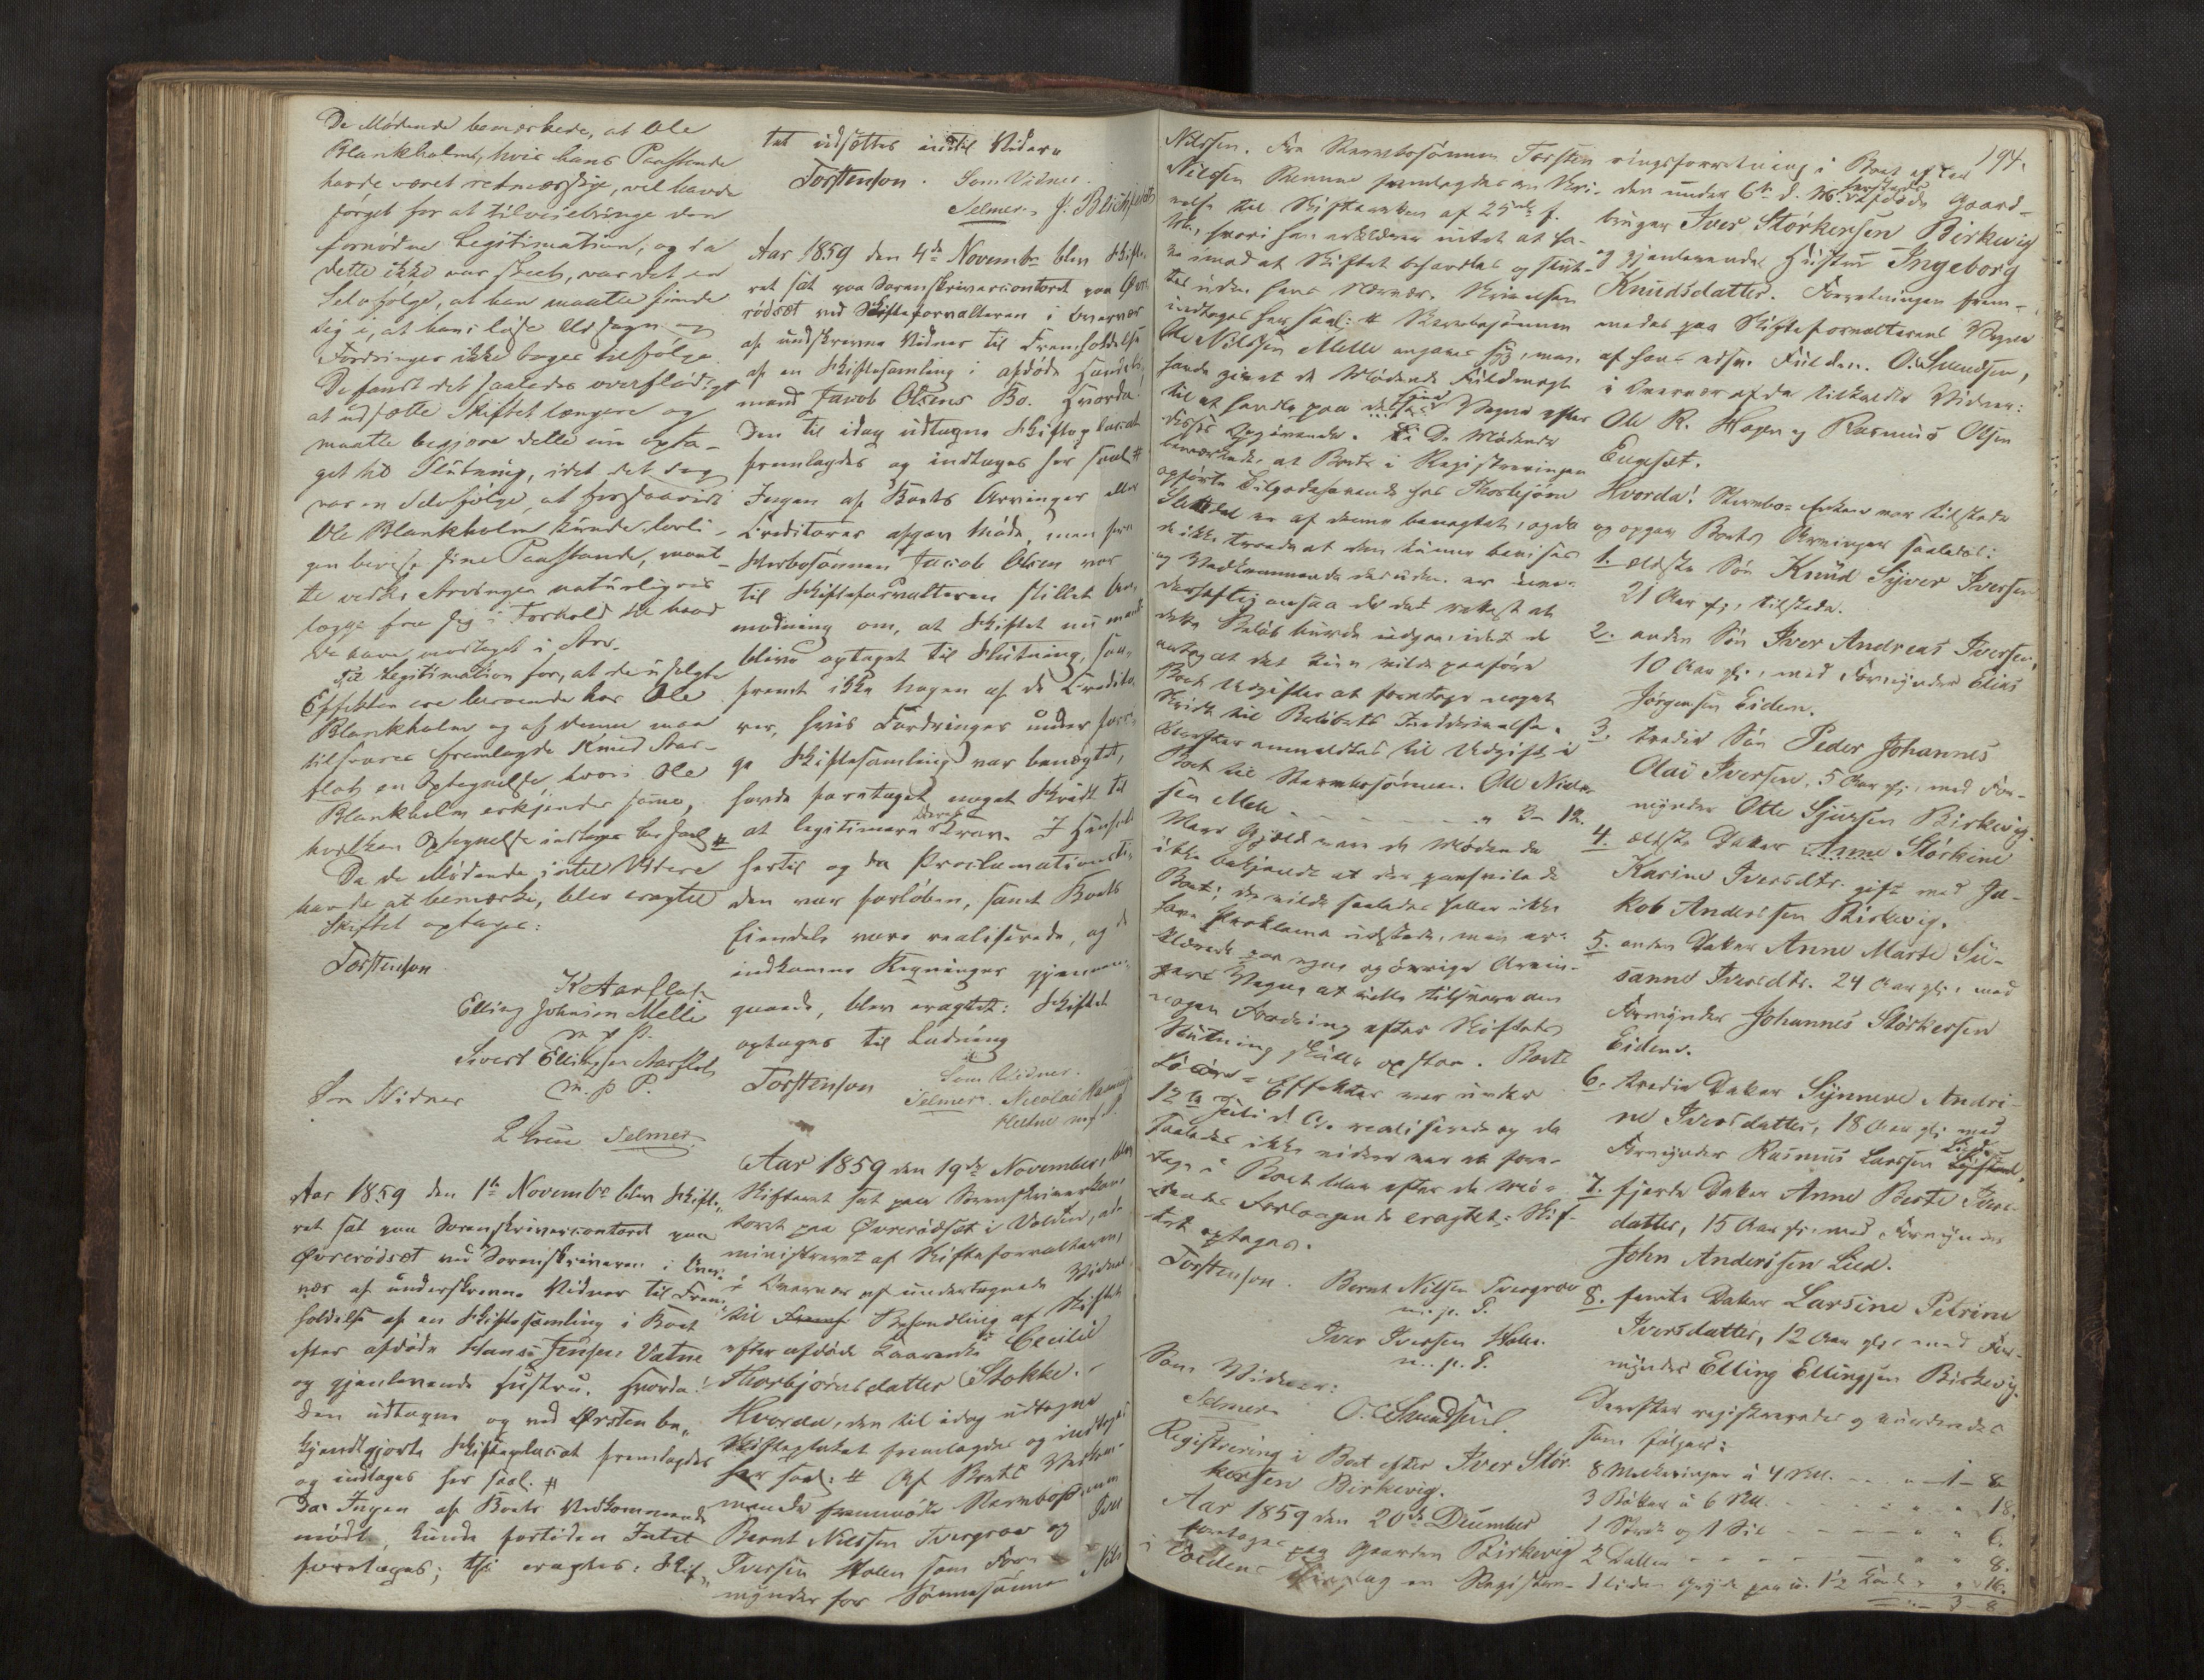 De Mødende bemærkede, at Ole
Blankholm, hvis hans Paastande
havde været retmæssige, vel havde
sørget for at tilveiebringe den
fornødne Legitimation, og da
dette ikke var skeet, var det en
Selvfølge, at han maatte finde
sig i, at hans løse Udsagn og
Fordringer ikke toges tilfølge.
De fandt det saaledes overflødigt
at udsætte Skiftet længere og
maatte begjære dette nu opta-
get til Slutning, idet det dog
var en Selvfølge, at forsaavidt
Ole Blankholm kunde lovli-
gen bevise sine Paastande, maat-
te vedk. Arvinger naturligvis
lægge fra sig i Forhold til hvad
de have modtaget i Arv.
Til Legitimation for, at de usolgte
Effekter ere beroende hos Ole
Blankholm og af denne maa
tilsvares fremlagde Knud Aar-
flot en Optegnelse, hvori Ole
Blankholm erkjender samme,
hvilken Optegnelse indtages her saal #
Da de Mødende intet Videre
havde at bemærke, blev eragtet
Skiftet optages:
Torstenson
K Aarflot
Elling Johnsen Melle
m. p. P.
Sivert Ellingsen Aarflot
m. p. P.
Som Vidner
Selmer
Aar 1859 den 1te Novembr blev Skifte-
ret sat paa Sorenskrivercontoret paa
Øvrerødsæt ved Sorenskriveren i Over-
vær af underskrevne Vidner til Frem-
holdelse af en Skiftesamling i Boet
efter afdøde Hans Jensen Vatne
og gjenlevende Hustru. Hvorda!
Den udtagne og ved Ørsten be-
kjendtgjorte Skifteplacat fremlagdes
og indtages her saal. #
Da Ingen af Boets Vedkommende
mødte, kunde fortiden Intet
foretages; thi eragtes: Skif-
tet udsættes indtil Videre
Torstenson. Som Vidner.
Selmer. J. Blichfeldt
Aar 1859 den 4de Novembr blev Skifte-
ret sat paa Sorenskrivercontoret paa Øvre
rødsæt ved Skifteforvalteren i Overvær
af undskrevne Vidner til Fremholdelse
af en Skiftesamling i afdøde Handels-
mand Jacob Olsens Bo. Hvorda!
Den til idag udtagne Skifteplacat
fremlagdes og indtages her saal #
Ingen af Boets Arvinger eller
Creditorer afgav Møde, men fra
Sterbosønnen Jacob Olsen var
til Skifteforvalteren stillet An-
modning om, at Skiftet nu maatte
blive optaget til Slutning, saa-
fremt ikke nogen af de Credito-
rer, hvis Fordringer under forri-
ge Skiftesamling var benægtet,
havde foretaget noget Skridt til
at legitimere deres Krav. I Henhold
hertil og da Proclamationsti-
den var forløben, samt Boets
Eiendele vare realiserede, og de
indkomne Regninger gjennem-
gaaede, blev eragtet: Skiftet
optages til Ludning
Torstenson Som Vidner.
Selmer. Nicolai
Aar 1859 den 19de November, blev
Skifteret sat paa Sorenskriverkon-
toret paa Øvrerødsæt i Volden, ad-
ministreret af Skifteforvalteren,
i Overvær af undertegnede Vidner
til Behandling af Skiftet
efter afdøde Cecilie
Thorbjørnsdatter Stokke.
Hvorda, den til idag udtagne
Skifteplakat fremlagdes og indtages
her saal: # Af Boets Vedkom-
mende fremmødte Stervbosønnen
Bernt Nilssen Tvergrov og Iver
Iversen Holen som For-
mynder for Sønnesønnen Nils
Nilssen. Fra Stervbosønnen Torsten
Nilssen Renne fremlagdes en Skri-
velse til Skifteretten af 25de f.
M., hvori han erklærer intet at ha-
ve imod at Skiftet behandles og slut-
tes uden hans Nærvær. Skrivelsen
indtages her saal: # Stervbosønnen
Ole Nilssen Melle angaves syg, men
havde givet de Mødende Fuldmagt
til at handle paa sine Vegne efter
disses Opgivende. De Mødende
bemærkede, at Boets i Registreringen
opførte Tilgodehavende hos Thorbjørn
Slettedal er af denne benægtet, og da
de ikke troede at den kunne bevises
og Vedkommende desuden er uve-
derheftig ansaa de det rettest at
dette Beløb burde udgaa, idet de
antog at det kun vilde paaføre
Boet Udgifter at foretage noget
Skridt til Beløbets Inddrivelse.
Derefter anmeldtes til Udgift i
Boet til Stervbosønnen Ole Nils-
sen Melle - - - - " 3 - 12.
Mere Gjeld vare de Mødende
ikke bekjendt at der paahvilede
Boet; de vilde saaledes heller ikke
have Proklama udstedt, men er-
klærede paa egne og øvrige Arvin-
gers Vegne at ville tilsvare om
nogen Fordring efter Skiftets
Slutning skulle opstaa. Boets
Løsøre-Effekter var under
12te Juli d. A. realiserede og da
saaledes ikke videre var at fore-
tage i Boet blev efter de Mø-
dendes Forlangende eragtet: Skif-
tet optages.
Torstenson. Bernt Nilsen Tvergrov
m. p. P.
Iver Iversen Holen.
m. p. P.
Som Vidner:
Selmer. O. Svendsen.
Registrering i Boet efter Iver Stør-
kersen Birkevig.
Aar 1859 den 20de December
foretoges paa Gaarden Birkevig
i Voldens Thinglag en Registre-
194.
ringsforretning i Boet efter
den under 6te d. M. afdøde Gaard-
bruger Iver Størkersen Birkevig
og gjenlevende Hustru Ingeborg
Knudsdatter. Forretningen frem-
medes paa Skifteforvalterens Vegne
af hans edsv. Fuldm. O. Svendsen,
i Overvær af de tilkaldte Vidner:
Ole R. Hagen og Rasmus Olsen
Engeset.
Hvorda! Stervbo-Enken var tilstede
og opgav Boets Arvinger saaledes:
1. ældste Søn Knud Syver Iversen
21 Aar gl., tilstede.
2. anden Søn Iver Andreas Iversen,
10 Aar gl., med Formynder Elias
Jørgensen Eidem.
3. tredie Søn Peder Johannes
Olai Iversen, 5 Aar gl., med For-
mynder Otte Sjursen Birkevig.
4. ældste Datter Anne Størkine
Karine Iversdtr. gift med Ja-
kob Anderssen Birkevig.
5. anden Datter Anne Marte Su-
sanne Iversdtr. 24 Aar gl., med
Formynder Johannes Størkersen
Eidem.
6. tredie Datter Synneve Andri-
ne Iversdatter, 18 Aar gl. med
Formynder Rasmus Larssen
7. fjerde Datter Anne Berte Ivers-
datter, 15 Aar gl. med Formynder
John Anderssen Lied.
8. femte Datter Larsine Petrine
Iversdatter, 12 Aar gl. med For-
mynder Elling Ellingsen Birkevig.
Derefter registreredes og vurderedes
som følger:
8 Melkeringer à 4 Sk. - - " - 1 - 8.
3 Bøtter à 6 Sk. - - " " 18.
1 Strok og 1 Sil - - " " 6.
2 Daller - - " " 8.
1 liden Gryde paa c. 1½ Kande " " 16.
3 - 8